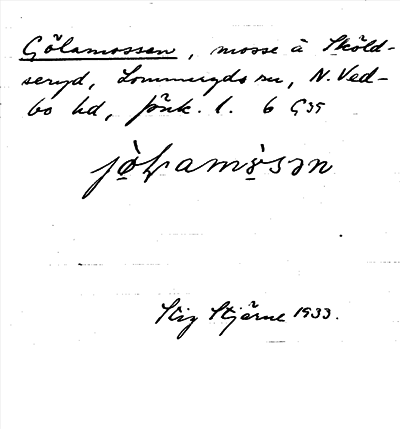 Gölamossen, mosse å Sköld-
seryd, Lommaryds sn, N. Ved-
bo hd, Jönk. l. 6 G 35
jö̀lamòsən
Stig Stjärne 1933.